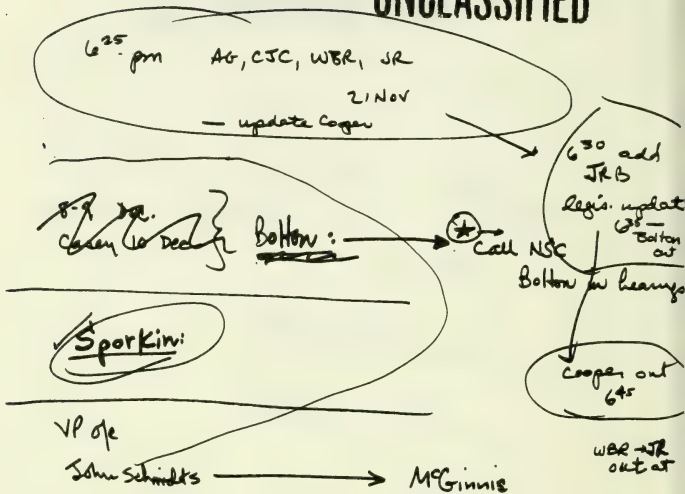 UNCLASSIFIED
6 25 pm AG, CJC, WBR, JR
21 Nov
— update Cooper
6 30 add
JRB
legis. update
6 35 —
Bolton
out
8-9 Dec.
Casey 10 Dec } Bolton :
★ Call NSC
Bolton in hearings
✓ Sporkin:
Cooper out
6 45
VP o/c
John Schmidts → McGinnis
WBR → JR
out at